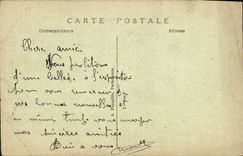 CARTE POSTALE
Correspondance
Adresse
Chère amie,
Nous profitons
d'une halte à l'exposition
pour vous remercier de
vos bonnes nouvelles et
en même temps vous envoyer
nos sincères amitiés
Bien à vous